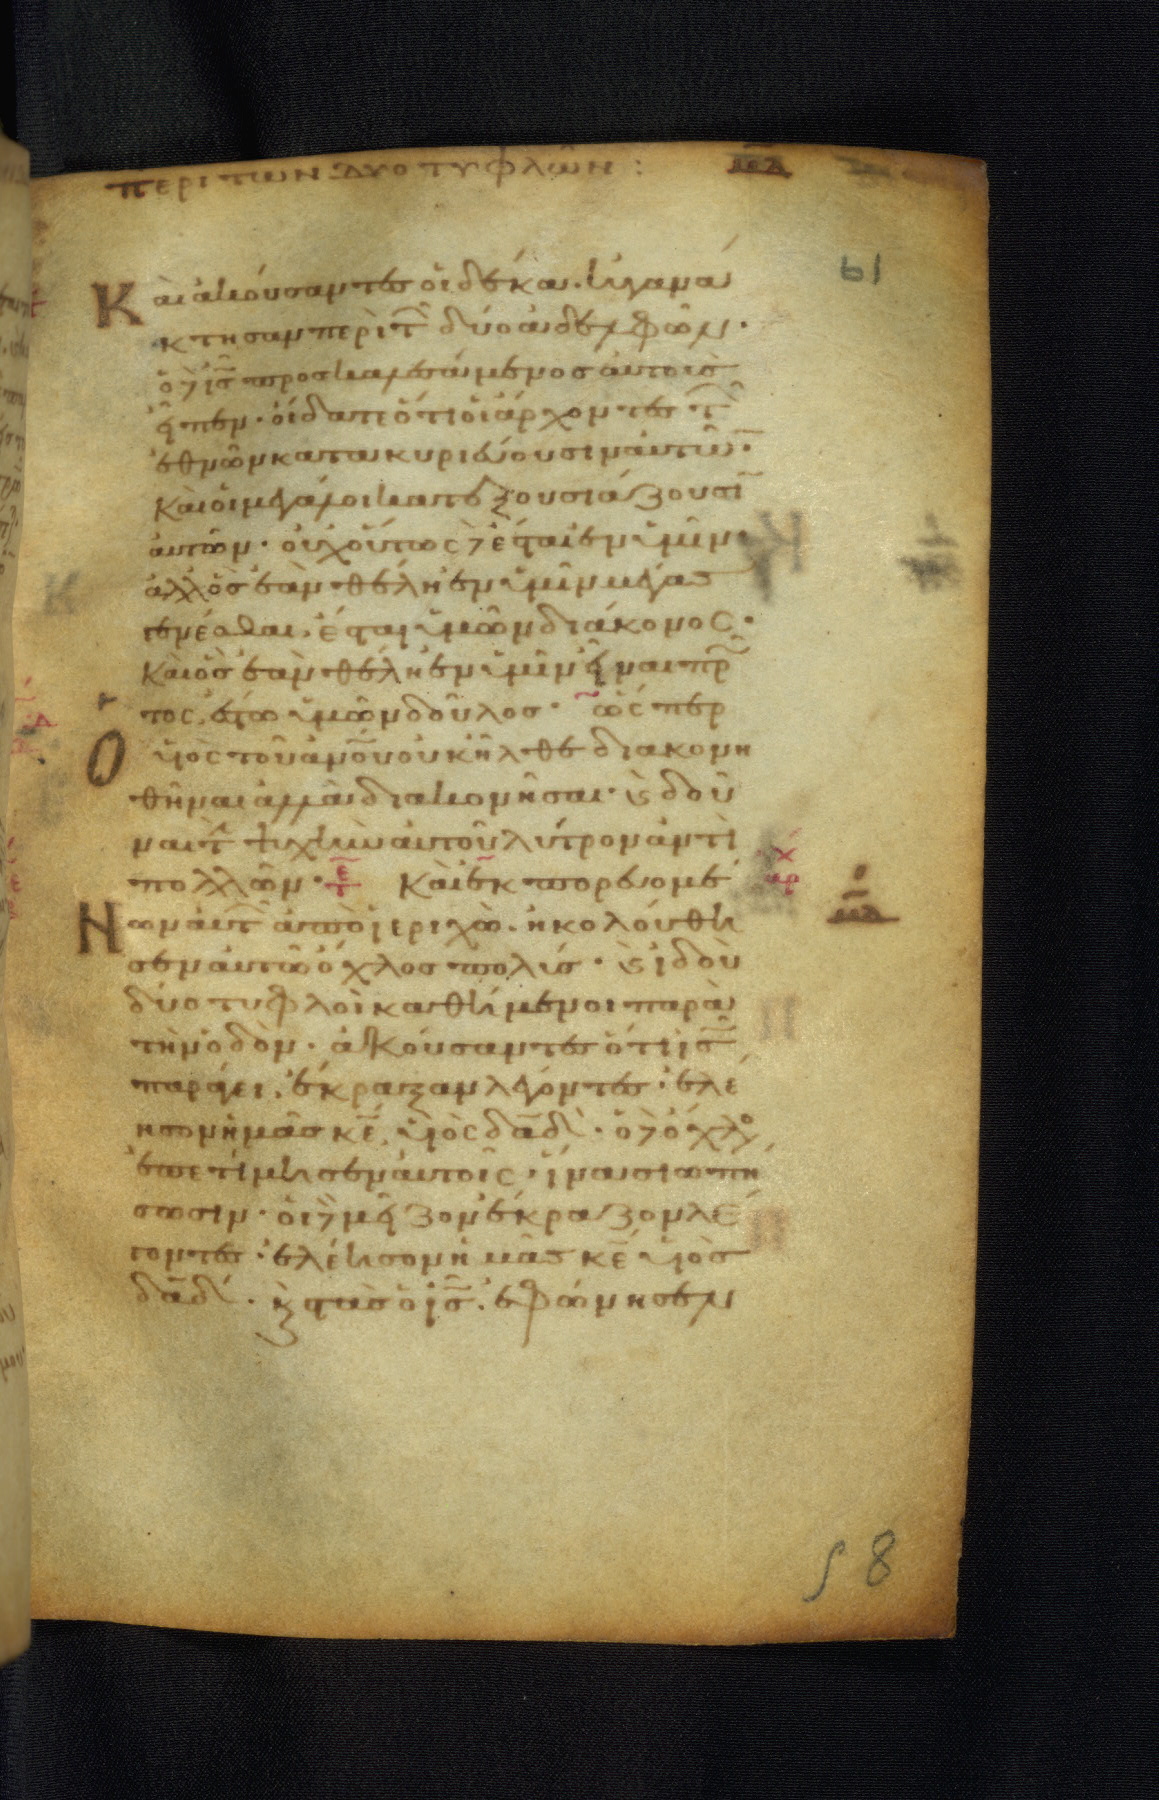 ΠΕΡΙ ΤΩΝ ΔΥΟ ΤΥΦΛΩΝ :
61
Καὶ ἀκούσαντες οἱ δέκα. ἠγανά
κτησαν περὶ τ̑ δύο ἀδελφῶν.
ὁ δὲ ι̅ς̅ προσκαλεσάμενος αὐτοὺς
εἶπεν. οἴδατε ὅτι οἱ ἄρχοντες τ̑
ἐθνῶν κατακυριεύουσιν αὐτῶν.
καὶ οἱ μεγάλοι κατεξουσιάζουσι̅
αὐτῶν. οὐχ οὕτως δὲ ἔσται ἐν ὑμῖν.
ἀλλ' ὃς ἐὰν θέλη ἐν ὑμῖν μέγας
γενέσθαι. ἔσται ὑμῶν διάκονος.
καὶ ὃς ἐὰν θέλη ἐν ὑμῖν εἶναι πρῶ
τος. ἔστω ὑμῶν δοῦλος. ὥσπερ
Ὁ υἱὸς τοῦ ἀν̅ο̅υ̅ οὐκ ἦλθε διακονη
θῆναι ἀλλὰ διακονῆσαι. ϗ δοῦ
ναι τ̀ ψυχὴν αὐτοῦ λύτρον ἀντὶ
πολλῶν. Καὶ ἐκπορευομέ
Νων αὐτ̑ ἀπὸ ἰεριχὼ. ἠκολούθη
σεν αὐτῶ ὄχλος πολύς. ϗ ἰδοὺ
δύο τυφλοὶ καθήμενοι παρὰ
τὴν ὁδὸν. ἀκούσαντες ὅτι ι̅ς̅
παράγει. ἔκραξαν λέγοντες. ἐλέ
ησον ἡμᾶς κ̅ε̅ υἱὸς δ̅α̅δ̅. ὁ δὲ ὄχλος
ἐπετίμησεν αὐτοῖς. ἵνα σιωπή
σωσιν. οἱ δὲ μεῖζον ἔκραζον λέ
γοντες. ἐλέησον ἡμᾶς κ̅ε̅ υἱὸς
δ̅α̅δ̅. ϗ στὰς ὁ ι̅ς̅. ἐφώνησεν
58